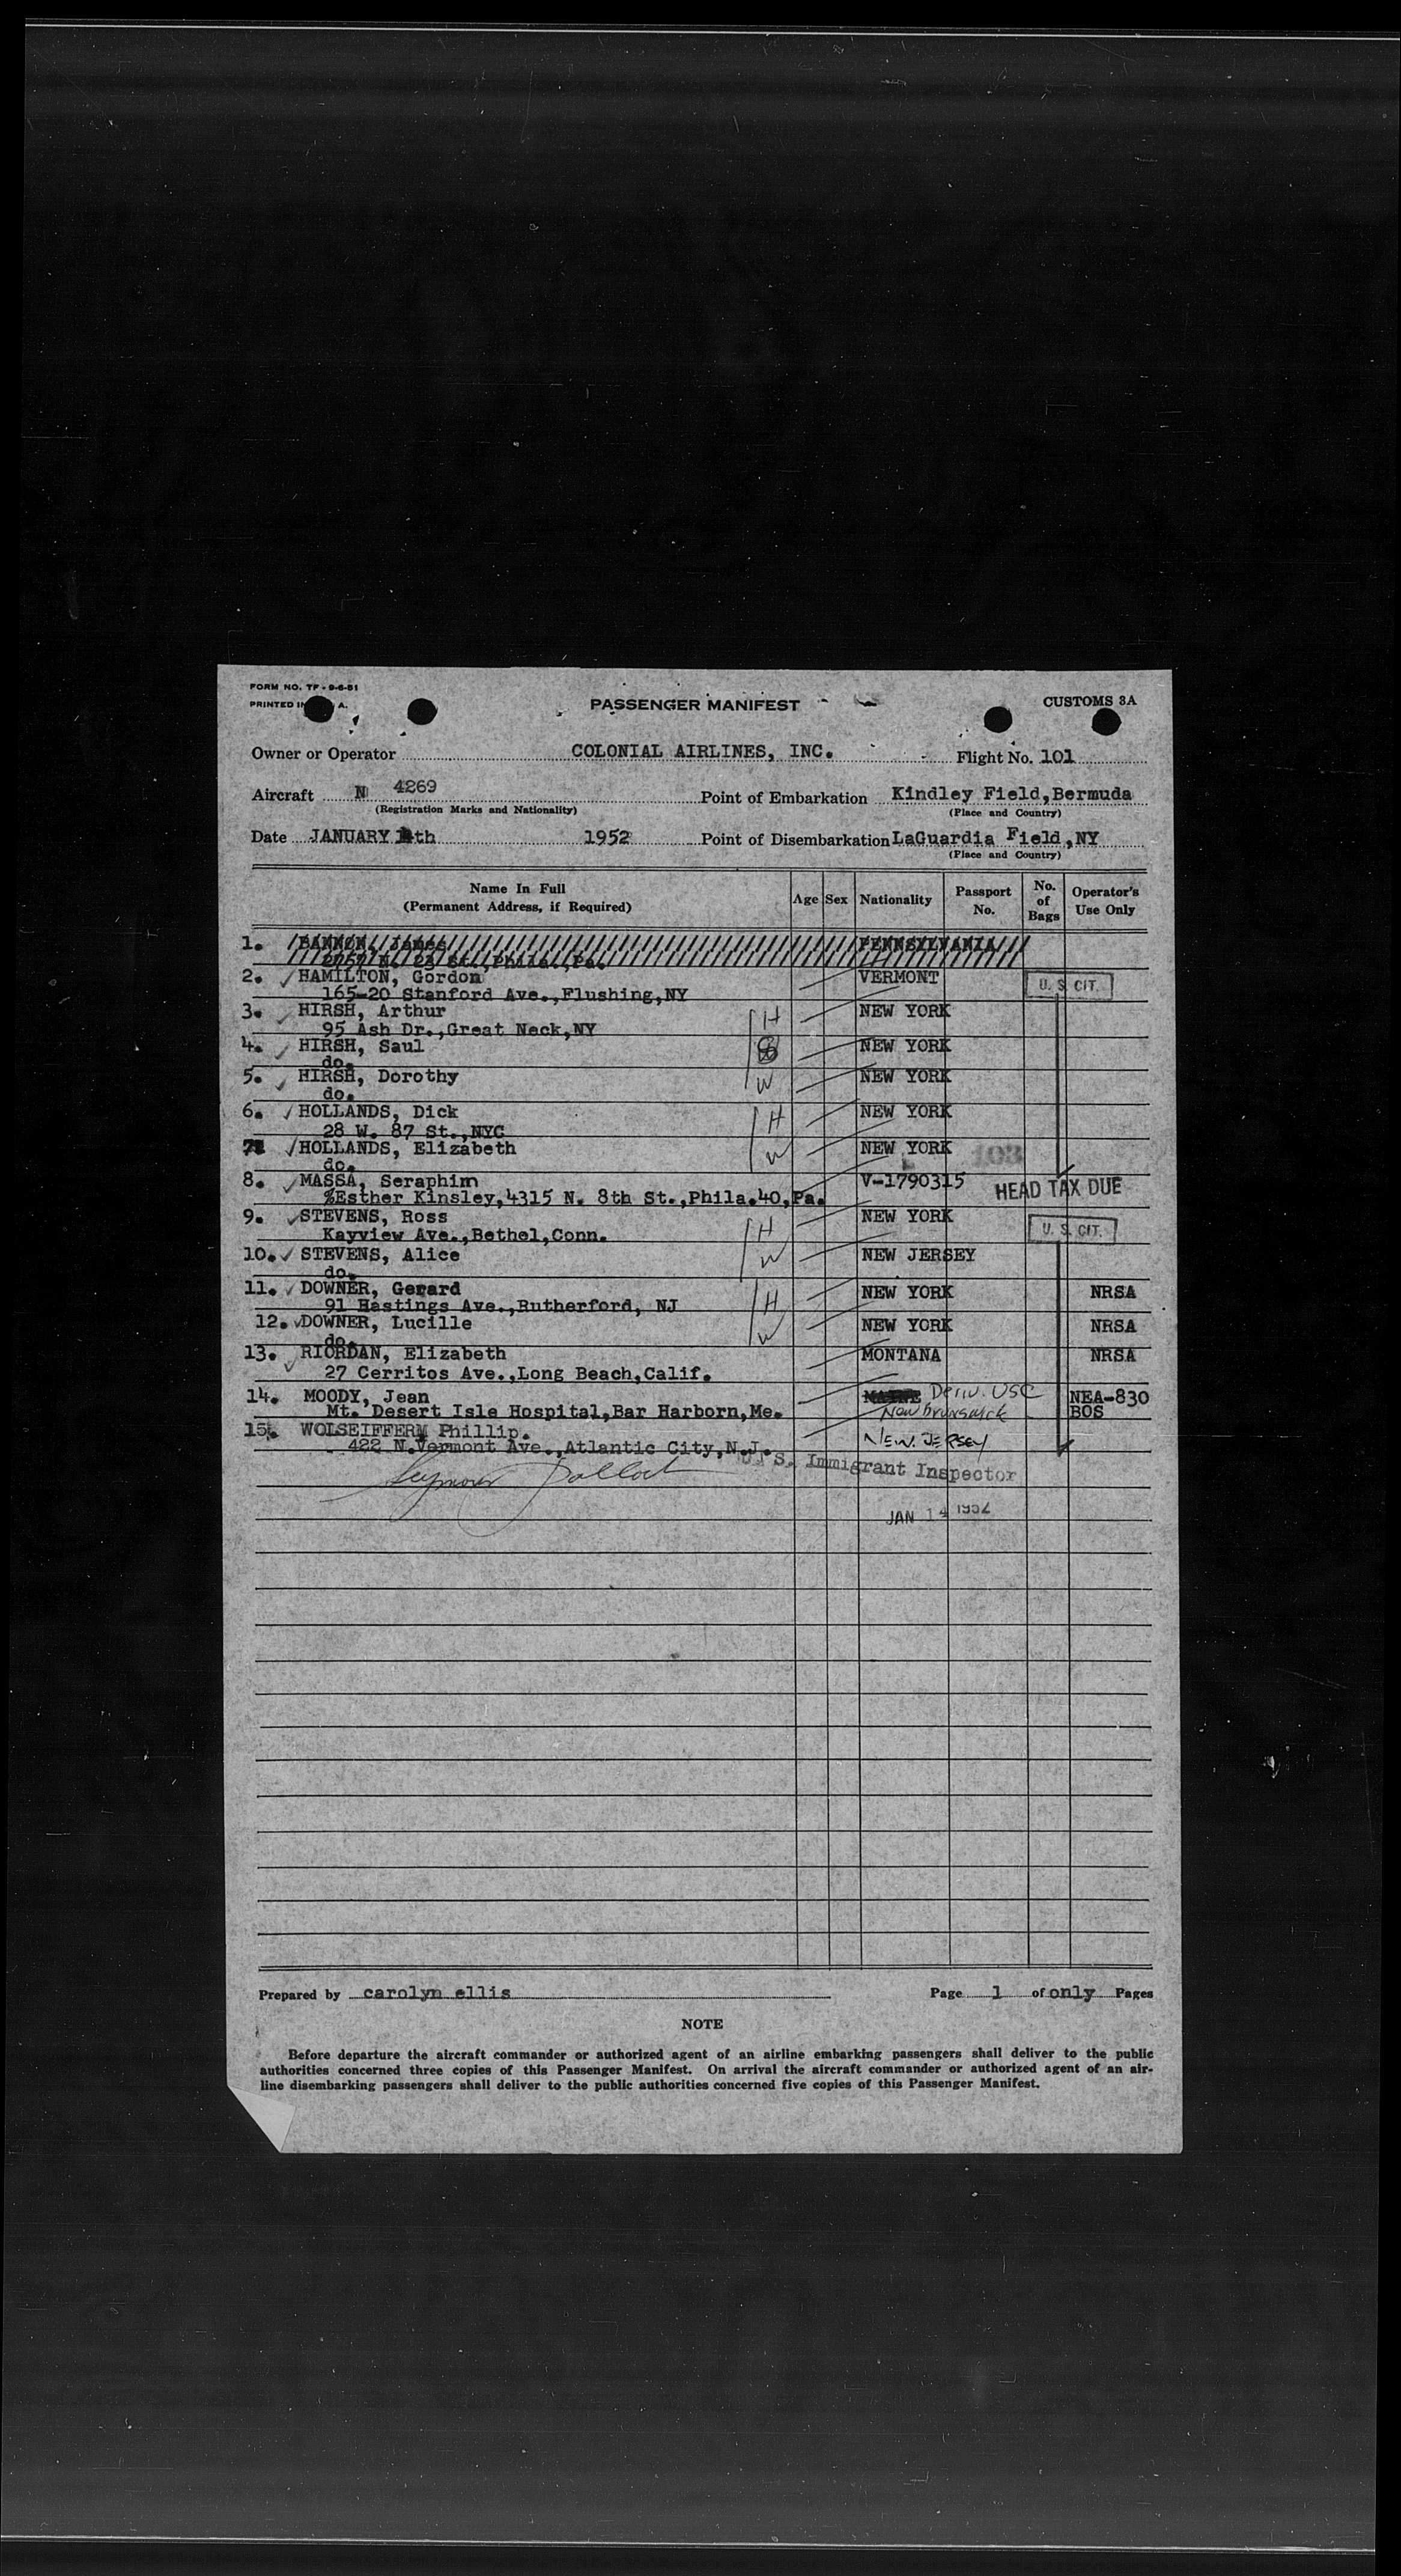 FORM NO. TF - 9-6-51
PRINTED IN A.
PASSENGER MANIFEST
CUSTOMS 3A
Owner or Operator COLONIAL AIRLINES, INC. Flight No. 101
Aircraft N 4269 Point of Embarkation Kindley Field,Bermuda
(Registration Marks and Nationality) (Place and Country)
Date JANUARY 14th 1952 Point of Disembarkation LaGuardia Field,NY
(Place and Country)
Name In Full
(Permanent Address, if Required)
Age Sex Nationality Passport No. No. of Bags Operator's Use Only
1. BANNON, James PENNSYLVANIA
2757 N. 23 St.,Phila.,Pa.
2. HAMILTON, Gordon VERMONT U. S. CIT.
165-20 Stanford Ave.,Flushing,NY
3. HIRSH, Arthur H NEW YORK
95 Ash Dr.,Great Neck,NY
4. HIRSH, Saul NEW YORK
do.
5. HIRSH, Dorothy W NEW YORK
do.
6. HOLLANDS, Dick H NEW YORK
28 W. 87 St.,NYC
7. HOLLANDS, Elizabeth W NEW YORK 103
do.
8. MASSA, Seraphim V-1790315 HEAD TAX DUE
%Esther Kinsley,4315 N. 8th St.,Phila.40,Pa.
9. STEVENS, Ross H NEW YORK U. S. CIT.
Kayview Ave.,Bethel,Conn.
10. STEVENS, Alice W NEW JERSEY
do.
11. DOWNER, Gerard H NEW YORK NRSA
91 Hastings Ave.,Rutherford, NJ
12. DOWNER, Lucille W NEW YORK NRSA
do.
13. RIORDAN, Elizabeth MONTANA NRSA
27 Cerritos Ave.,Long Beach,Calif.
14. MOODY, Jean MAINE Deriv. USC NEA-830
Mt. Desert Isle Hospital,Bar Harborn,Me. New Brunswick BOS
15. WOLSEIFFERM Phillip. NEW JERSEY
422 N.Vermont Ave.,Atlantic City,N.J.
Seymour Pollack U. S. Immigrant Inspector
JAN 14 1952
Prepared by carolyn ellis Page 1 of only Pages
NOTE
Before departure the aircraft commander or authorized agent of an airline embarking passengers shall deliver to the public
authorities concerned three copies of this Passenger Manifest. On arrival the aircraft commander or authorized agent of an air-
line disembarking passengers shall deliver to the public authorities concerned five copies of this Passenger Manifest.